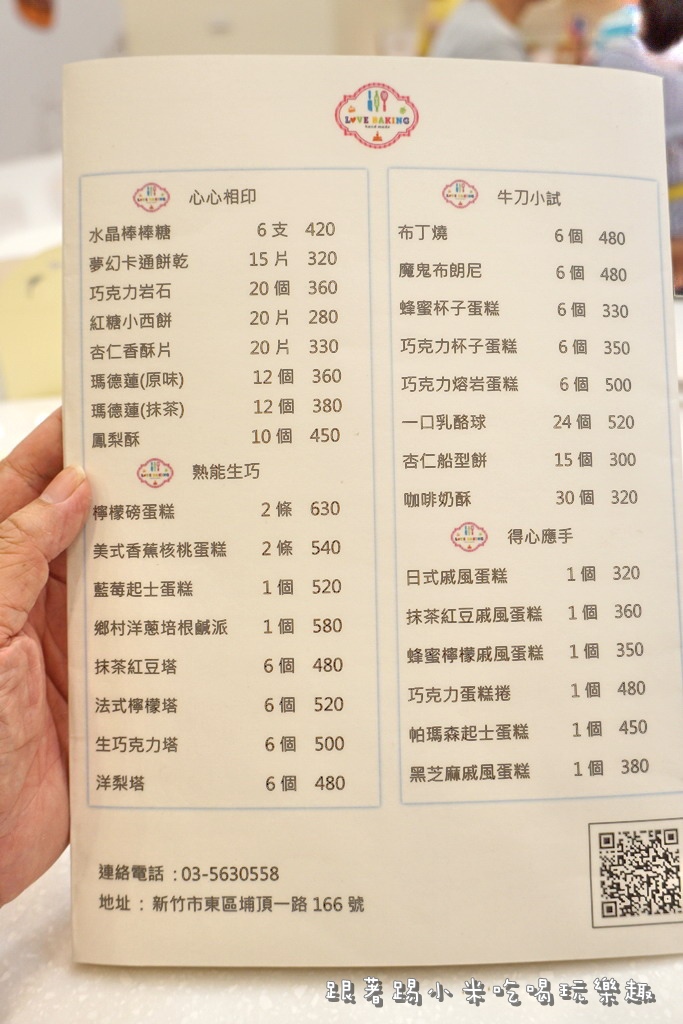 LOVE BAKING
hand made
心心相印
水晶棒棒糖 6 支 420
夢幻卡通餅乾 15 片 320
巧克力岩石 20 個 360
紅糖小西餅 20 片 280
杏仁香酥片 20 片 330
瑪德蓮(原味) 12 個 360
瑪德蓮(抹茶) 12 個 380
鳳梨酥 10 個 450
熟能生巧
檸檬磅蛋糕 2 條 630
美式香蕉核桃蛋糕 2 條 540
藍莓起士蛋糕 1 個 520
鄉村洋蔥培根鹹派 1 個 580
抹茶紅豆塔 6 個 480
法式檸檬塔 6 個 520
生巧克力塔 6 個 500
洋梨塔 6 個 480
牛刀小試
布丁燒 6 個 480
魔鬼布朗尼 6 個 480
蜂蜜杯子蛋糕 6 個 330
巧克力杯子蛋糕 6 個 350
巧克力熔岩蛋糕 6 個 500
一口乳酪球 24 個 520
杏仁船型餅 15 個 300
咖啡奶酥 30 個 320
得心應手
日式戚風蛋糕 1 個 320
抹茶紅豆戚風蛋糕 1 個 360
蜂蜜檸檬戚風蛋糕 1 個 350
巧克力蛋糕捲 1 個 480
帕瑪森起士蛋糕 1 個 450
黑芝麻戚風蛋糕 1 個 380
連絡電話 : 03-5630558
地址 : 新竹市東區埔頂一路 166 號
跟著踢小米吃喝玩樂趣